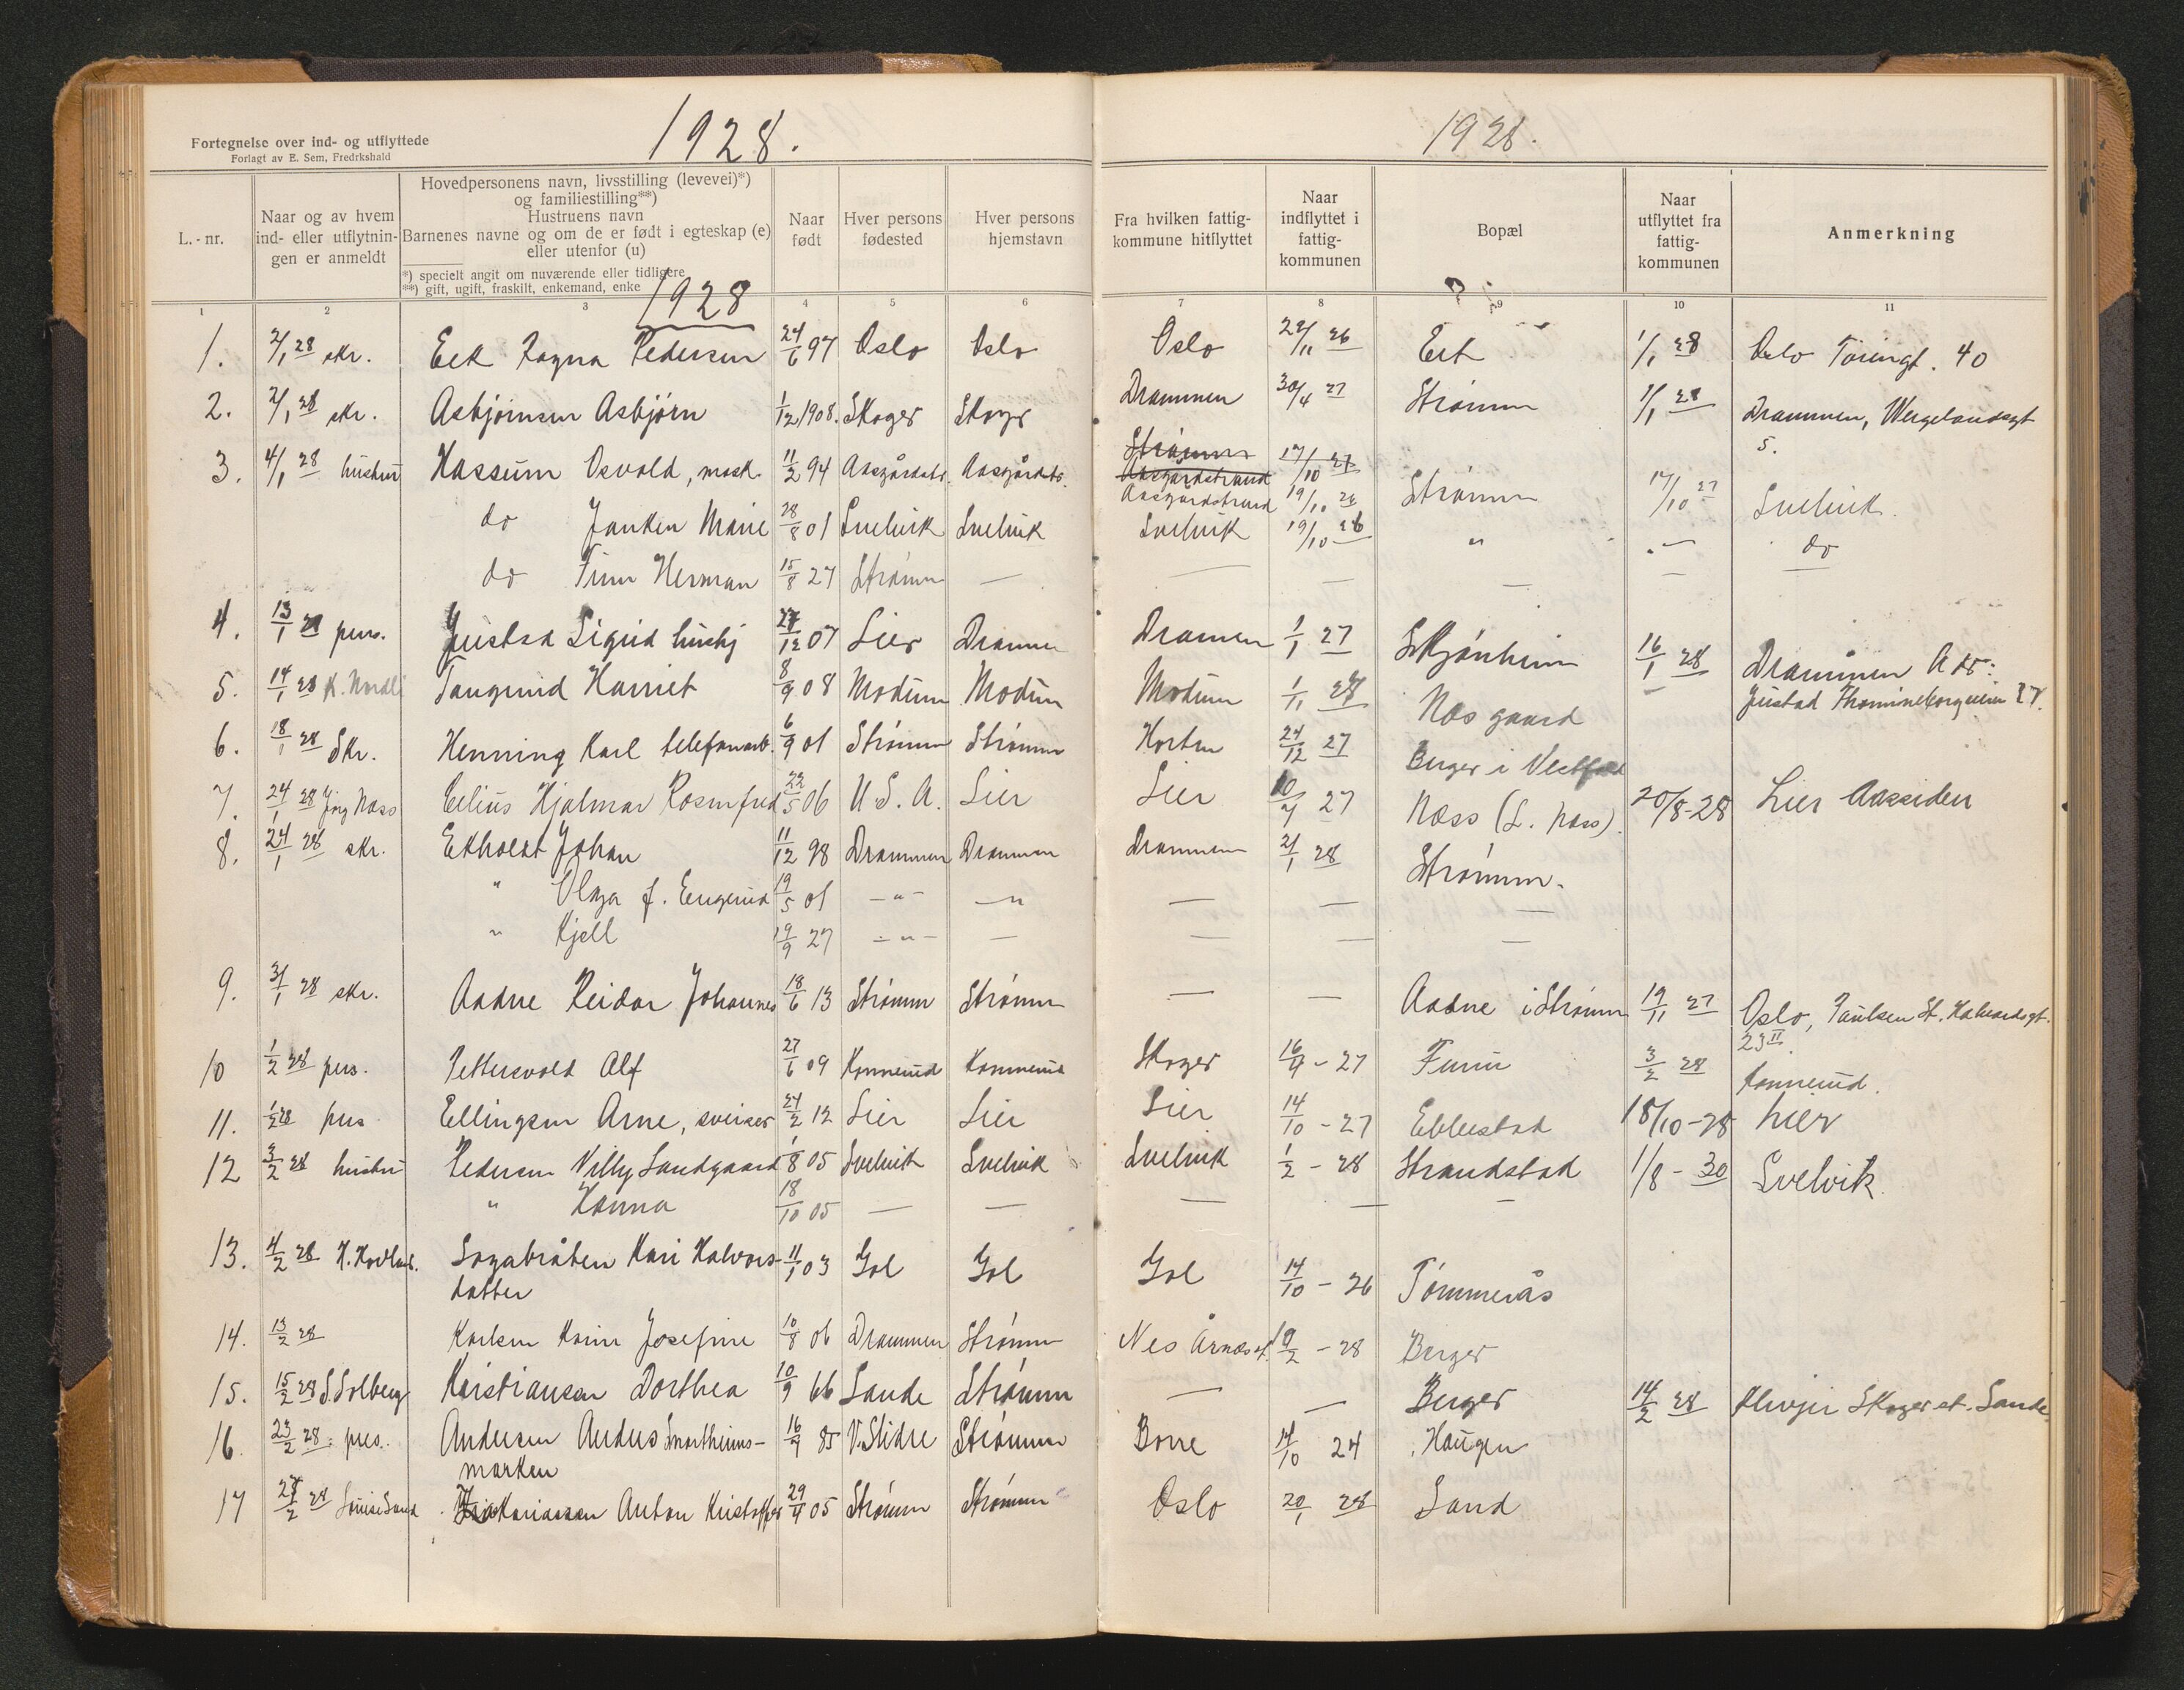 Fortegnelse over ind- og utflyttede
Forlagt av E. Sem, Fredrkshald
1928.
1928.
L.-nr.
Naar og av hvem ind- eller utflytnin-gen er anmeldt
Hovedpersonens navn, livsstilling (levevei)*)
og familiestilling**)
Hustruens navn
Barnenes navne og om de er født i egteskap (e)
eller utenfor (u)
*) specielt angit om nuværende eller tidligere
**) gift, ugift, fraskilt, enkemand, enke
Naar født
Hver persons fødested
Hver persons hjemstavn
Fra hvilken fattig-kommune hitflyttet
Naar indflyttet i fattig-kommunen
Bopæl
Naar utflyttet fra fattig-kommunen
Anmerkning
1 2 3 4 5 6 7 8 9 10 11
1928
1. 2/1 28 skr. Eek Ragna Pedersen 24/6 97 Oslo Oslo Oslo 29/11 26 Eek 1/1 28 Oslo 40
2. 2/1 28 skr. Asbjørnsen Asbjørn 1/12 1908. Skoger Skoger Drammen 30/4 27 Strømm 1/1 28 Drammen, Wergelandsgt
5.
Strømm 17/10 27
Aasgardstrand
3. 4/1 28 Hassum Osvald, mask. 11/2 94 Aasgårdstr. Aasgårdstr. Aasgardstrand 19/10 26 Strømm 17/10 27 Svelvik
do Janken Marie 28/8 01 Svelvik Svelvik Svelvik 19/10 26 " " — do
do Finn Herman 15/8 27 Strømm — — — — —
4. 13/1 28 pers. Justad Sigrid hushj 27/12 07 Lier Drammen Dramen 1/1 27 Skjønheim 16/1 28 Drammen Adr:
5. 14/1 28 K. Nordli Tangerud Harriet 8/9 08 Modum Modum Modum 1/1 28 Næs gaard — Justad 27.
6. 18/1 28 Skr. Henning Karl telefonarb. 6/9 01 Strømm Strømm Horten 24/12 27 Berger i Vestfold
7. 24/1 28 Jørg Næss Eilius Hjalmar Rosenfred 22/5 06 U.S.A. Lier Lier 10/7 27 Næss (L. Næss). 20/8-28 Lier Aassiden
8. 24/1 28 skr. Ekholdt Johan 11/12 98 Drammen Drammen Drammen 2/1 28 Strømm.
" Olga f. Engerud 19/5 01 —"— —" — — —
" Kjell 19/9 27 —"— — — — —
9. 31/1 28 skr. Aadne Reidar Johannes 18/6 13 Strømm Strømm — — Aadne i Strømm 19/11 27 Oslo, Paulsen St. Halvardsgt.
23 II
10 1/2 28 pers. Pettersvold Alf 27/6 09 Konnerud Konnerud Skoger 16/4 - 27 Furu 3/2 28 Konnerud.
11. 1/2 28 pers Ellingsen Arne, sveiser 24/2 12 Lier Lier Lier 14/10 - 27 Ebbestad 18/10-28 Lier
12 3/2 28 hustru Pedersen Willy Sandgaard 1/8 05 Svelvik Svelvik Svelvik 1/2 - 28 Strandstad 1/8 - 30 Svelvik.
" Hanna 18/10 05 — — — — —
13. 4/2 28 H. Sagabråten Kari Halvors- 11/1 03 Gol Gol Gol 14/10 - 26 Tømmerås
datter
14. 13/2 28 Karlsen Karin Josefine 10/8 06 Drammen Strømm Nes Årnæs st. 10/2 - 28 Berger
15. 15/2 28 S. Solberg Kristiansen Dorthea 10/9 66 Sande Strømm — — Berger 14/2 28 Skoger st. Sande.
16. 23/2 28 pers. Andersen Anders Smorthiuns- 16/9 85 V. Slidre Strømm Borre 14/10 24 Haugen
marken
17 28/2 28 Louise Sand Zakariassen Anton Kristoffer 29/4 05 Strømm Strømm Oslo 20/1 28 Sand